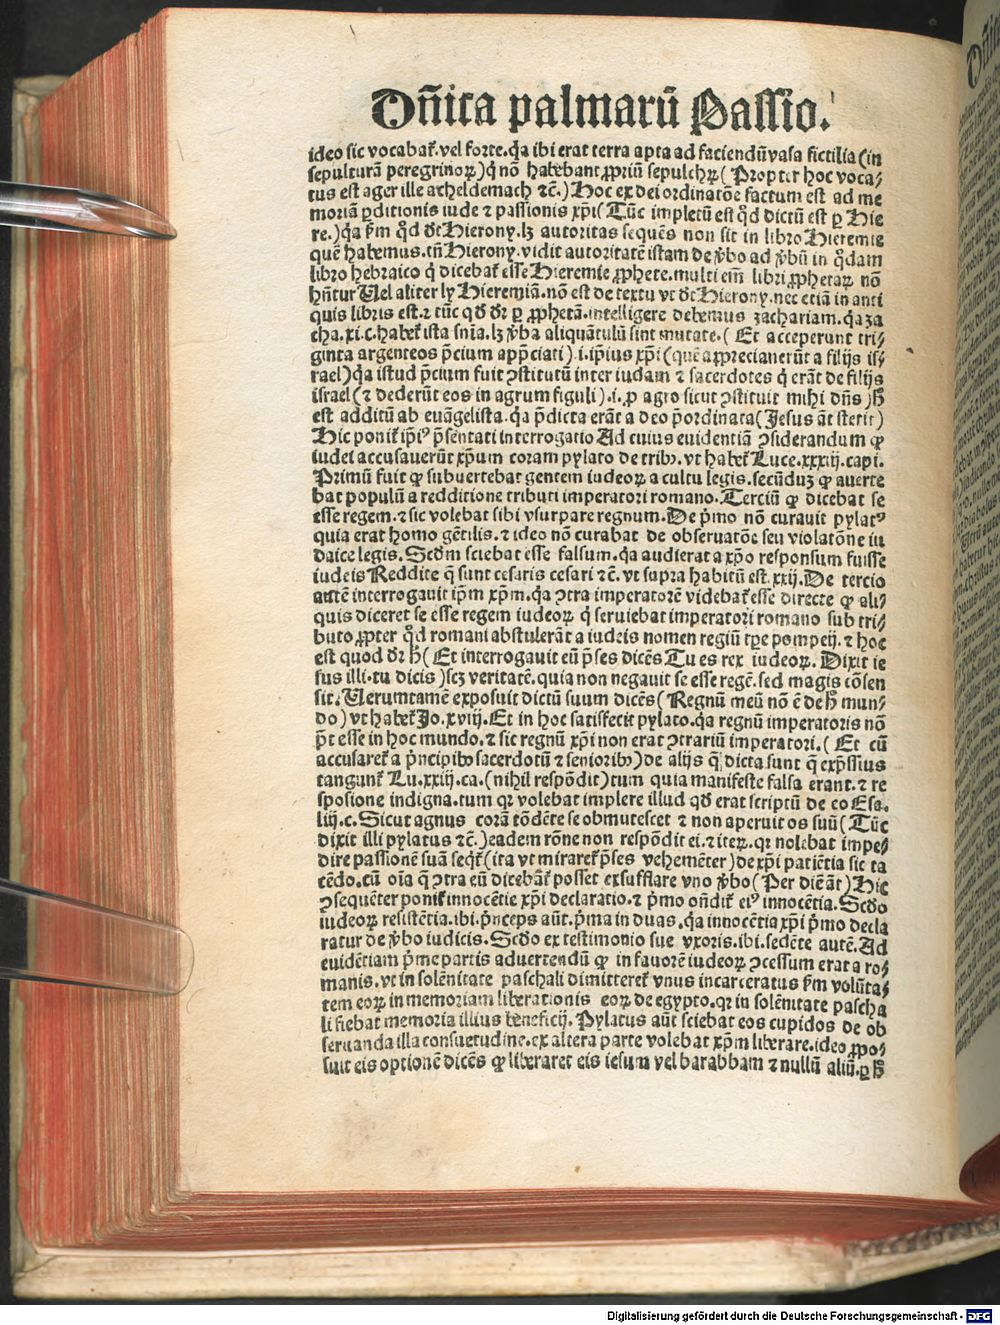 Dñica palmarū Passio.
ideo sic vocabat᷑. vel forte. q̇a ibi erat terra apta ad faciendū vasa fictilia (in
sepulturā peregrinoꝝ) q̇ nō habebant ꝓpriū sepulchꝝ (Propter hoc voca⸗
tus est ager ille acheldemach ⁊c̄.) Hoc ex dei ordinatōe factum est ad me
moriā ꝑditionis iude ⁊ passionis xp̄i (Tūc impletū est q̇d dictū est ꝑ Hie
re.) q̇a ẜm q̇d dt̄ Hierony. lꝫ autoritas sequēs non sit in libro Hieremie
quē habemus. tn̄ Hierony. vidit autoritatē istam de v̓bo ad v̓bū in q̇dam
libro hebraico q̇ dicebat᷑ esse Hieremie ꝓphete. multi em̄ libri ꝓphetaꝝ nō
hn̄tur Uel aliter ly Hieremiā. nō est de textu vt dt̄ Hierony. nec etiā in anti
quis libris est. ⁊ tūc qd̄ dr̄ ꝑ ꝓphetā. intelligere debemus zachariam. q̇a za
cha. xi. c. habet᷑ ista snīa. lꝫ v̓ba aliquātulū sint mutate. ( Et acceperunt tri⸗
ginta argenteos p̄cium app̄ciati) .i. ip̄ius xp̄i (quē apprecianerūt a filijs is⸗
rael) q̇a istud p̄cium fuit ꝯstitutū inter iudam ⁊ sacerdotes q̇ erāt de filijs
israel (⁊ dederūt eos in agrum figuli) .i. ꝓ agro sicut ꝯstituit mihi dn̄s) h̄
est additū ab euāgelista. q̇a p̄dicta erāt a deo p̄ordinata (Jesus āt stetit)
Hic ponit᷑ ip̄iꝰ p̄sentati interrogatio Ad cuius euidentiā ꝯsiderandum ꝙ
iudei accusauerūt xp̄um coram pylato de tribꝰ. vt habet᷑ Luce. xxxiij. capi.
Primū fuit ꝙ subuertebat gentem iudeoꝝ a cultu legis. secūduꝫ ꝙ auerte
bat populū a redditione tributi imperatori romano. Terciū ꝙ dicebat se
esse regem. ⁊ sic volebat sibi vsurpare regnum. De p̓mo nō curauit pylatꝰ
quia erat homo gētilis. ⁊ ideo nō curabat de obseruatōe seu violatōne iu
daice legis. Scd̄m sciebat esse falsum. q̇a audierat a xp̄o responsum fuisse
iudeis Reddite q̄ sunt cesaris cesari ⁊c̄. vt supra habitū est. xxij. De tercio
autē interrogauit ip̄m xp̄m. q̇a ꝯtra imperatorē videbat᷑ esse directe ꝙ ali⸗
quis diceret se esse regem iudeoꝝ q̇ seruiebat imperatori romano sub tri⸗
buto ꝓpter q̇d romani abstulerāt a iudeis nomen regiū tꝑe pompeij. ⁊ hoc
est quod dr̄ h̄ (Et interrogauit eū p̄ses dicēs Tu es rex iudeoꝝ. Dixit ie
sus illi. tu dicis) scꝫ veritatē. quia non negauit se esse regē. sed magis cōsen
sit. Uerumtamē exposuit dictū suum dicēs (Regnū meū nō ē de h̄ mun⸗
do) vt habet᷑ Jo. xviij. Et in hoc satisfecit pylato. q̇a regnū imperatoris nō
p̄t esse in hoc mundo. ⁊ sic regnū xp̄i non erat ꝯtrariū imperatori. ( Et cū
accusaret᷑ a p̓ncipibꝰ sacerdotū ⁊ senioribꝰ) de alijs q̄ dicta sunt q̄ exp̄ssius
tangunt᷑ Lu. xxiij. ca. (nihil respōdit) tum quia manifeste falsa erant. ⁊ re
sposione indigna. tum qꝛ volebat implere illud qd̄ erat scriptū de eo Esa.
liij. c. Sicut agnus corā tōdēte se obmutescet ⁊ non aperuit os suū (Tūc
dixit illi pylatus ⁊c̄.) eadem rōne non respōdit ei. ⁊ iteꝝ. qꝛ nolebat impe⸗
dire passionē suā seqt᷑ (ita vt miraret᷑ p̄ses vehemēter) de xp̄i patiētia sic ta
cēdo. cū oīa q̄ ꝯtra eū dicebāt᷑ posset exsufflare vno v̓bo (Per diē āt) Hic
ꝯsequēter ponit᷑ innocētie xp̄i declaratio. ⁊ p̓mo on̄dit᷑ eiꝰ innocētia. Scd̄o
iudeoꝝ resistētia. ibi. p̓nceps aūt. p̓ma in duas. q̇a innocētia xp̄i p̓mo decla
ratur de v̓bo iudicis. Scd̄o ex testimonio sue vxoris. ibi. sedēte autē. Ad
euidētiam p̓me partis aduertendū ꝙ in fauorē iudeoꝝ ꝯcessum erat a ro⸗
manis. vt in solēnitate paschali dimitteret᷑ vnus incarceratus ẜm volūta⸗
tem eoꝝ in memoriam liberationis eoꝝ de egypto. qꝛ in solēnitate pascha
li fiebat memoria illius beneficij. Pylatus aūt sciebat eos cupidos de ob
seruanda illa consuetudine. ex altera parte volebat xp̄m liberare. ideo ꝓpo⸗
suit eis optionē dicēs ꝙ liberaret eis iesum vel barabbam ⁊ nullū aliū. ꝑ h̄
Digitalisierung gefördert durch die Deutsche Forschungsgemeinschaft - DFG